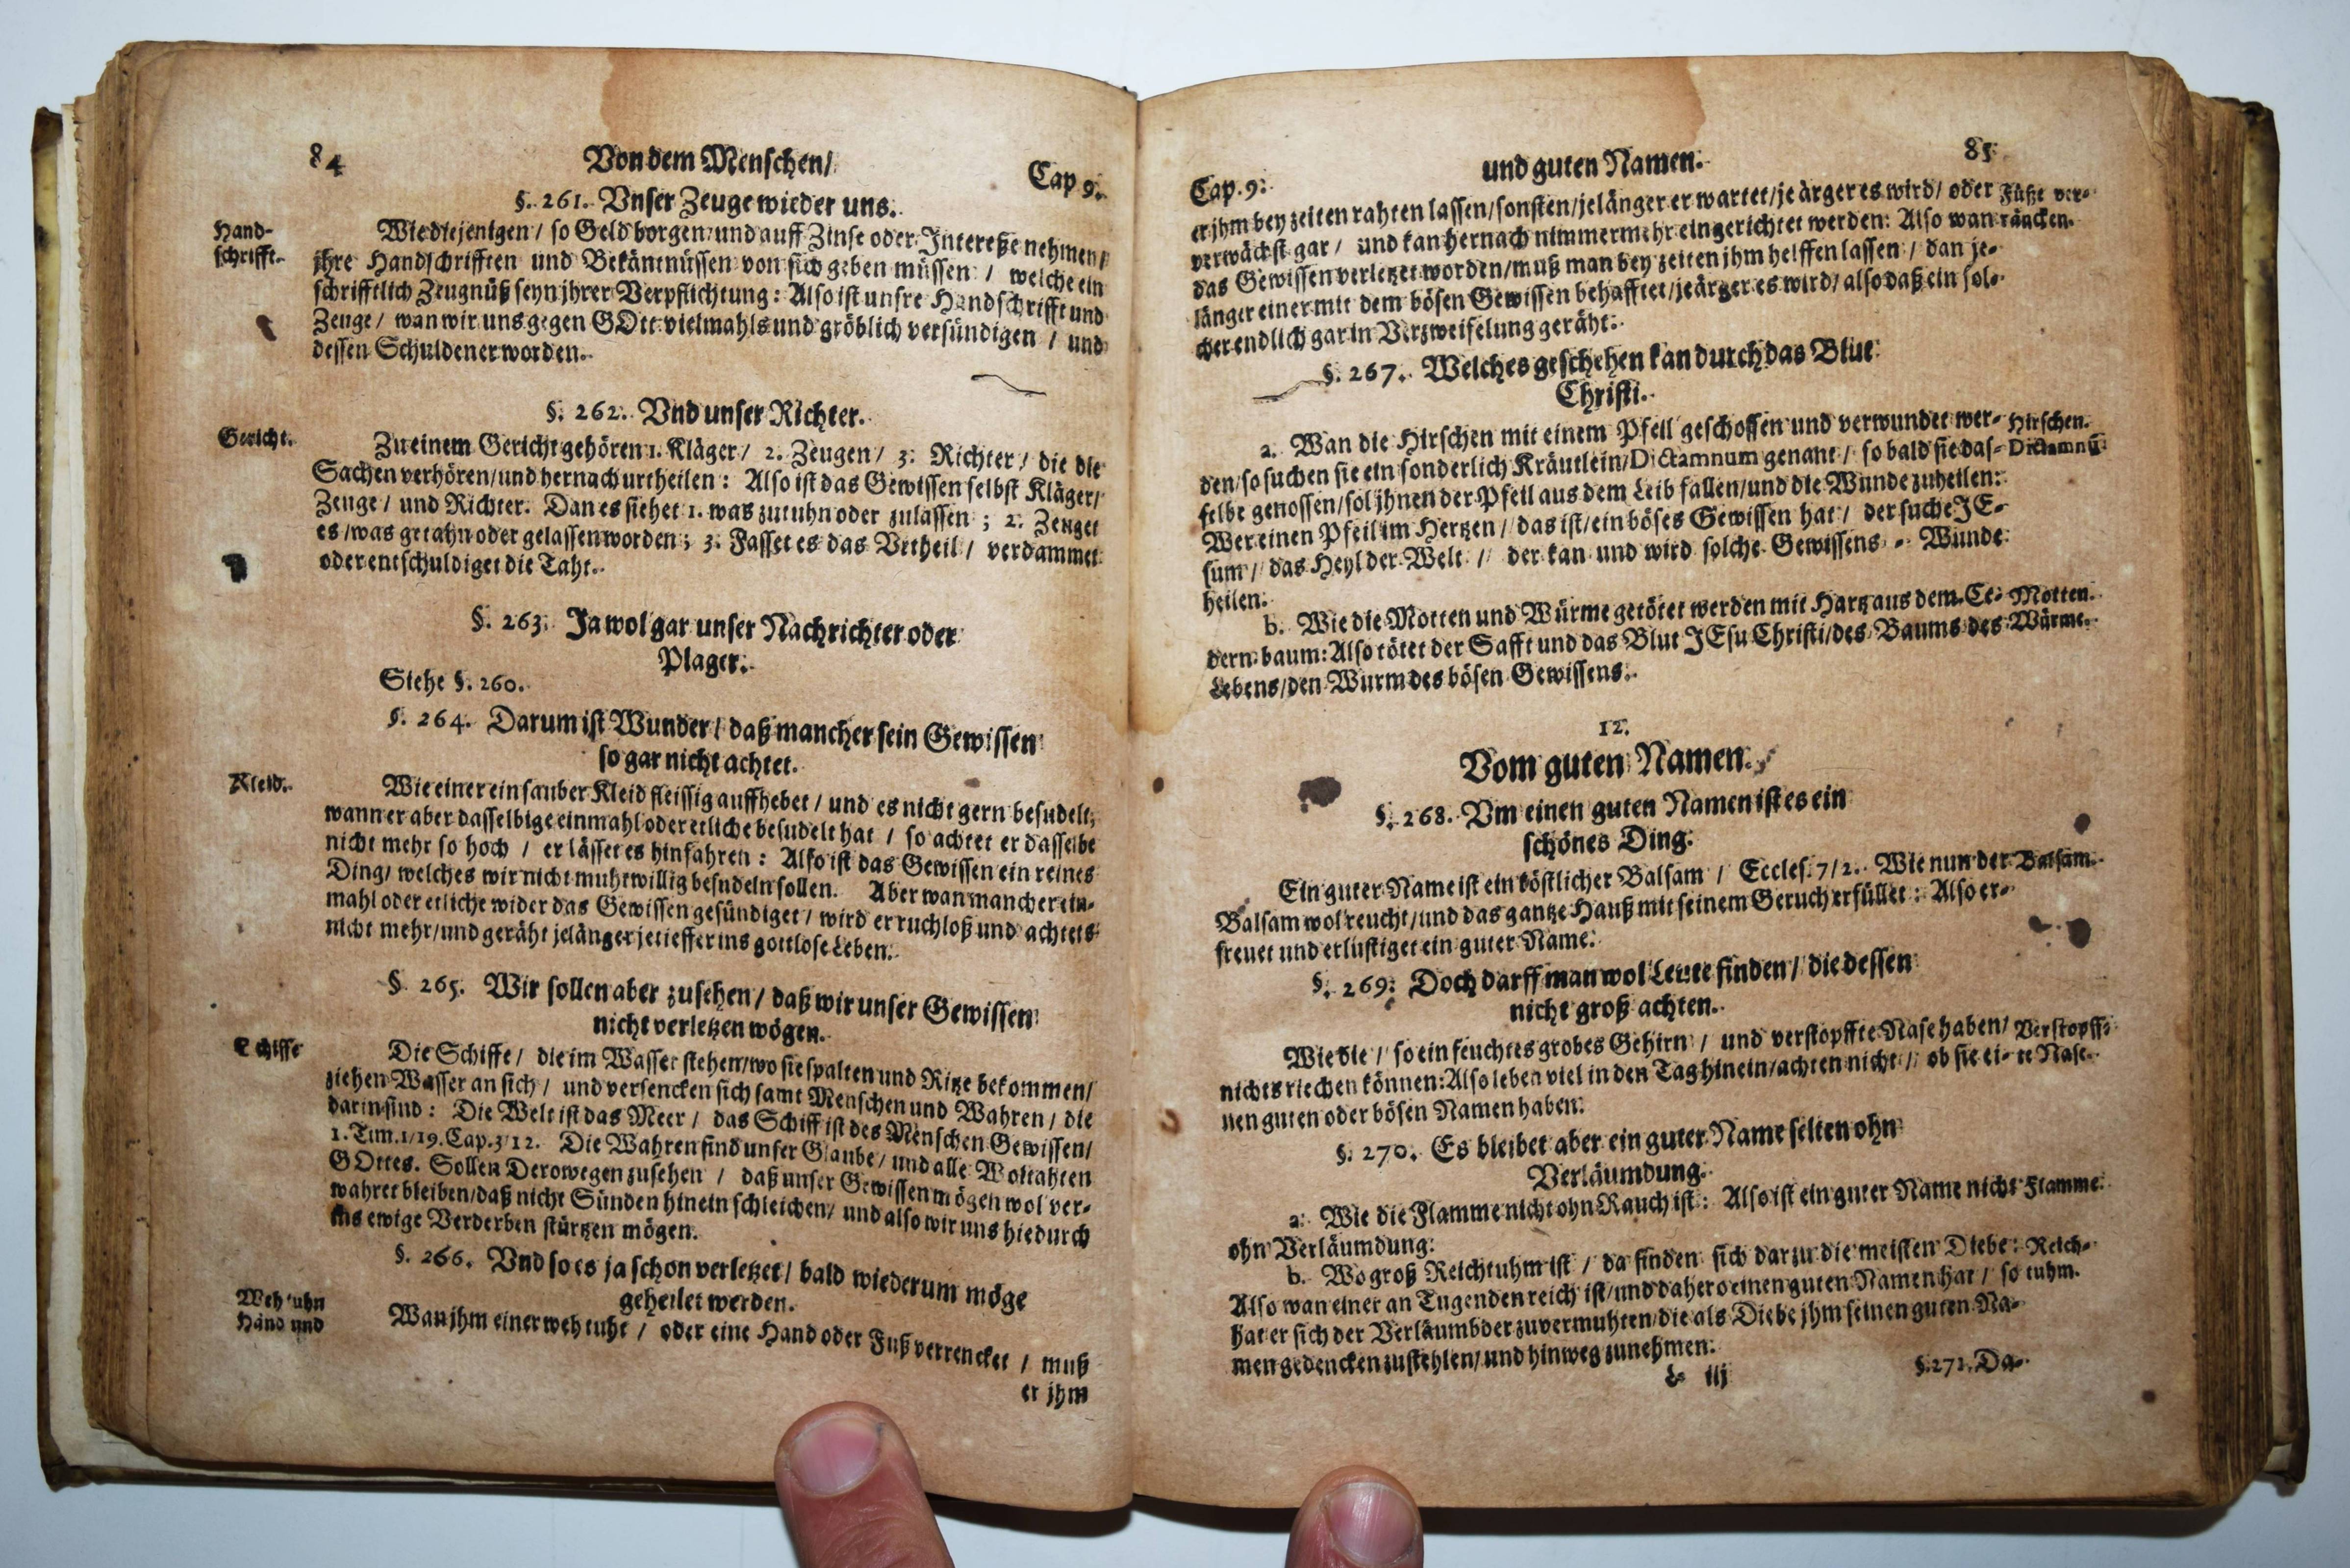 84
Von dem Menschen/
Cap 9.
§. 261. Vnser Zeuge wieder uns.
Hand-
schrifft.
Wie diejenigen / so Geld borgen und auff Zinse oder Intereße nehmen/
jhre Handschrifften und Bekäntnüssen von sich geben müssen / welche ein
schrifftlich Zeugnüß seyn jhrer Verpflichtung: Also ist unsre Handschrifft und
Zeuge / wan wir uns gegen GOtt vielmahls und gröblich versündigen / und
dessen Schuldener worden.
§. 262. Vnd unser Richter.
Gericht.
Zu einem Gericht gehören 1. Kläger / 2. Zeugen / 3. Richter / die die
Sachen verhören/und hernach urtheilen: Also ist das Gewissen selbst Kläger/
Zeuge / und Richter. Dan es siehet 1. was zu tuhn oder zulassen ; 2. Zeuget
es/was getahn oder gelassen worden ; 3. Fasset es das Vrtheil / verdammet
oder entschuldiget die Taht.
§. 263. Ja wol gar unser Nachrichter oder
Plager.
Siehe §. 260.
§. 264. Darum ist Wunder / daß mancher sein Gewissen
so gar nicht achtet.
Kleid.
Wie einer ein sauber Kleid fleissig auffhebet / und es nicht gern besudelt,
wann er aber dasselbige einmahl oder etliche besudelt hat / so achtet er dasselbe
nicht mehr so hoch / er lässet es hinfahren: Also ist das Gewissen ein reines
Ding/ welches wir nicht muhtwillig besudeln sollen. Aber wan mancher ein-
mahl oder etliche wider das Gewissen gesündiget / wird er ruchloß und achtets
nicht mehr/und geräht je länger je tieffer ins gottlose Leben.
§ 265. Wir sollen aber zusehen / daß wir unser Gewissen
nicht verletzen mögen.
Schiffe
Die Schiffe / die im Wasser stehen/wo sie spalten und Ritze bekommen/
ziehen Wasser an sich / und versencken sich samt Menschen und Wahren / die
darin sind: Die Welt ist das Meer / das Schiff ist des Menschen Gewissen/
1. Tim. 1/19. Cap. 3/12. Die Wahren sind unser Glaube / und alle Woltahten
GOttes. Sollen Derowegen zusehen / daß unser Gewissen mögen wol ver-
wahret bleiben/daß nicht Sünden hinein schleichen/ und also wir uns hiedurch
ins ewige Verderben stürtzen mögen.
§. 266. Vnd so es ja schon verletzet / bald wiederum möge
geheilet werden.
Weh tuhn
Hand und
Wan jhm einer weh tuht / oder eine Hand oder Fuß verrencket / muß
er jhm
und guten Namen.
85
Cap. 9.
er jhm bey zeiten rahten lassen/sonsten/je länger er wartet/je ärger es wird/ oder
Füße ver-
räncken.
verwächst gar / und kan hernach nimmermehr eingerichtet werden: Also wan
das Gewissen verletzet worden/muß man bey zeiten jhm helffen lassen / dan je-
länger einer mit dem bösen Gewissen behafftet/je ärger es wird/ also daß ein sol-
cher endlich gar in Verzweifelung geräht.
§. 267. Welches geschehen kan durch das Blut
Christi.
a. Wan die Hirschen mit einem Pfeil geschossen und verwundet wer-
Hirschen.
Dictamnū
den/so suchen sie ein sonderlich Kräutlein/Dictamnum genant / so bald sie das-
selbe genossen/sol jhnen der Pfeil aus dem Leib fallen/und die Wunde zuheilen:
Wer einen Pfeil im Hertzen / das ist/ein böses Gewissen hat / der suche JE-
sum / das Heyl der Welt / der kan und wird solche Gewissens - Wunde
heilen.
b. Wie die Motten und Würme getötet werden mit Hartz aus dem Ce-
Motten.
Würme.
dern baum: Also tötet der Safft und das Blut JEsu Christi/des Baums des
Lebens/den Wurm des bösen Gewissens.
12.
Vom guten Namen.
§. 268. Vm einen guten Namen ist es ein
schönes Ding.
Ein guter Name ist ein köstlicher Balsam / Eccles. 7/2. Wie nun der
Balsam.
Balsam wol reucht/und das gantze Hauß mit seinem Geruch erfüllet: Also er-
freuet und erlustiget ein guter Name.
§. 269. Doch darff man wol Leute finden / die dessen
nicht groß achten.
Wie die / so ein feuchtes grobes Gehirn / und verstopffte Nase haben/
Verstopff-
te Nase.
nichts riechen können: Also leben viel in den Tag hinein/achten nicht / ob sie ei-
nen guten oder bösen Namen haben.
§. 270. Es bleibet aber ein guter Name selten ohn
Verläumdung.
a. Wie die Flamme nicht ohn Rauch ist: Also ist ein guter Name nicht
Flamme.
ohn Verläumdung.
b. Wo groß Reichtuhm ist / da finden sich darzu die meisten Diebe:
Reich-
tuhm.
Also wan einer an Tugenden reich ist/und dahero einen guten Namen hat / so
hat er sich der Verläumbder zuvermuhten/die als Diebe jhm seinen guten Na-
men gedencken zustehlen/und hinweg zunehmen.
L iij
§. 271. Da-